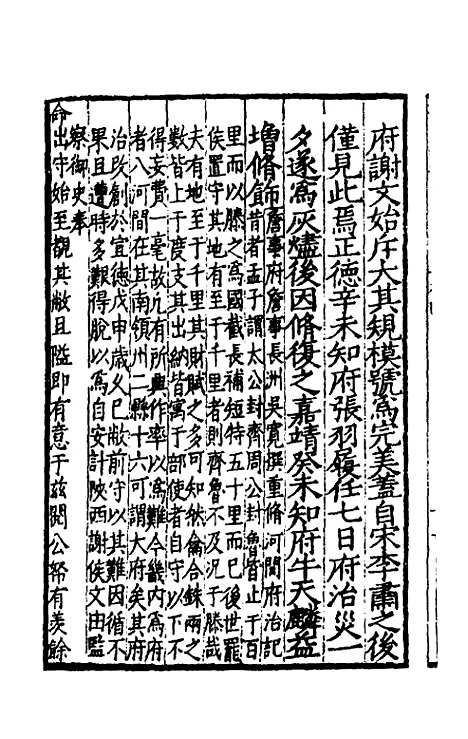 府謝文始斥大其規模號為完美蓋自宋李肅之後
僅見此焉正德辛未知府張羽履任七日府治災一
夕遂為灰燼後因脩復之嘉靖癸未知府牛天麟益
增脩飾
詹事府詹事長洲吳寬撰重脩河間府治記
昔者孟子謂太公封齊周公封魯皆止于百
里而以滕之為國截長補短特五十里而已後世罷
侯置守其地有至于千里者則齊魯不及况于滕哉
夫有地至于千里其財賦之多可知然龠合銖兩之
數皆上于度支其出納皆寓于部使者自守以下不
得妄費一毫故凢有所興作率以為難今畿内為府
者八河間在其南領州二縣十六可謂大府矣其府
治改創於宣德戊申歲久已敝前守以其難因循不
果且遭時多艱得脫以為自安計陜西謝侯文由監
察御史奉
命出守始至覩其敝且隘即有意于兹閱公帑有羡餘